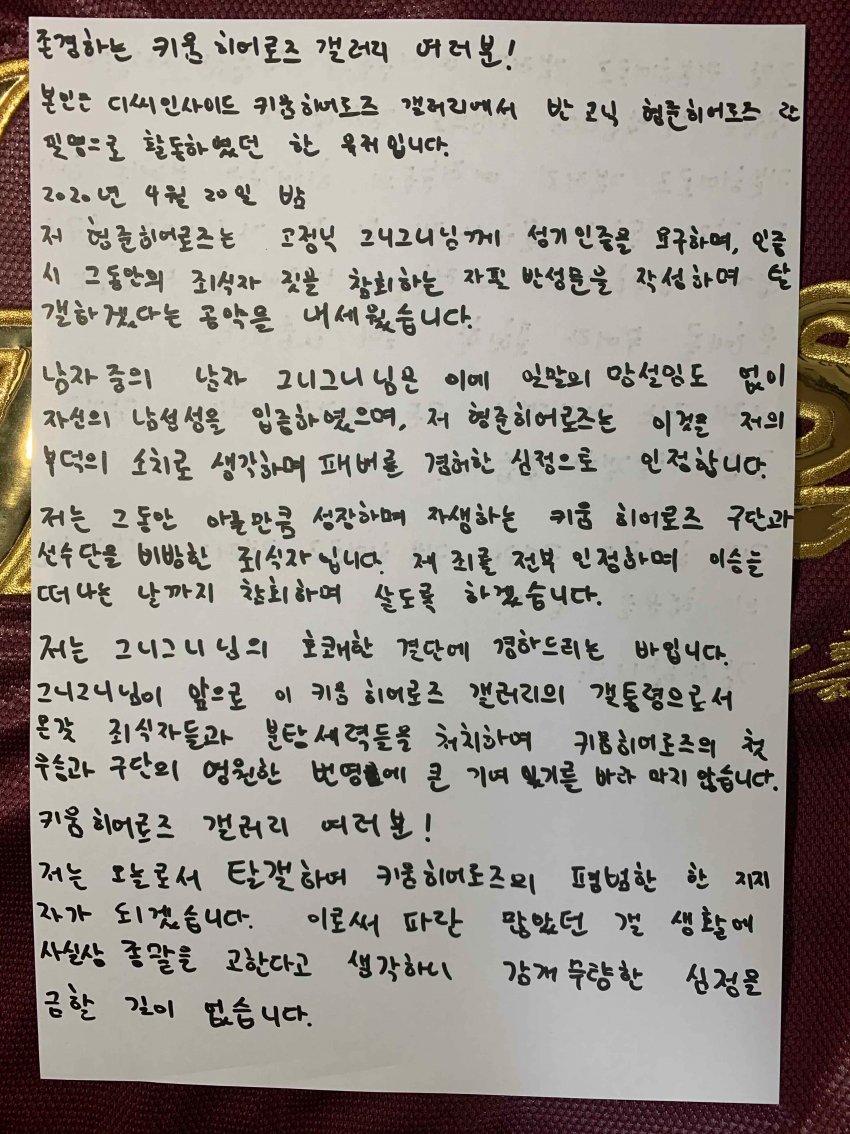 존경하는 키움 히어로즈 갤러리 여러분!
본인은 디씨인사이드 키움히어로즈 갤러리에서 반고닉 형준히어로즈 란
필명으로 활동하였던 한 유저입니다.
2020년 4월 20일 밤
저 형준히어로즈는 고정닉 그니그니님께 성기인증을 요구하며, 인증
시 그동안의 죄식자 짓을 참회하는 자필 반성문을 작성하며 탈
갤하겠다는 공약을 내세웠습니다.
남자 중의 남자 그니그니님은 이에 일말의 망설임도 없이
자신의 남성성을 입증하였으며, 저 형준히어로즈는 이것을 저의
부덕의 소치로 생각하며 패배를 겸허한 심정으로 인정합니다.
저는 그동안 아름만큼 성장하며 자생하는 키움 히어로즈 구단과
선수단을 비방한 죄식자입니다. 제 죄를 전부 인정하며 이승을
떠나는 날까지 참회하며 살도록 하겠습니다.
저는 그니그니님의 호쾌한 결단에 경하드리는 바입니다.
그니그니님이 앞으로 이 키움 히어로즈 갤러리의 갤통령으로서
온갖 죄식자들과 분탕세력들을 처치하여 키움히어로즈의 첫
우승과 구단의 영원한 번영에 큰 기여 있기를 바라 마지 않습니다.
키움히어로즈 갤러리 여러분!
저는 오늘로서 탈갤하여 키움히어로즈의 평범한 한 지지
자가 되겠습니다. 이로써 파란 많았던 갤 생활에
사실상 종말을 고한다고 생각하니 감개무량한 심정을
금할 길이 없습니다.